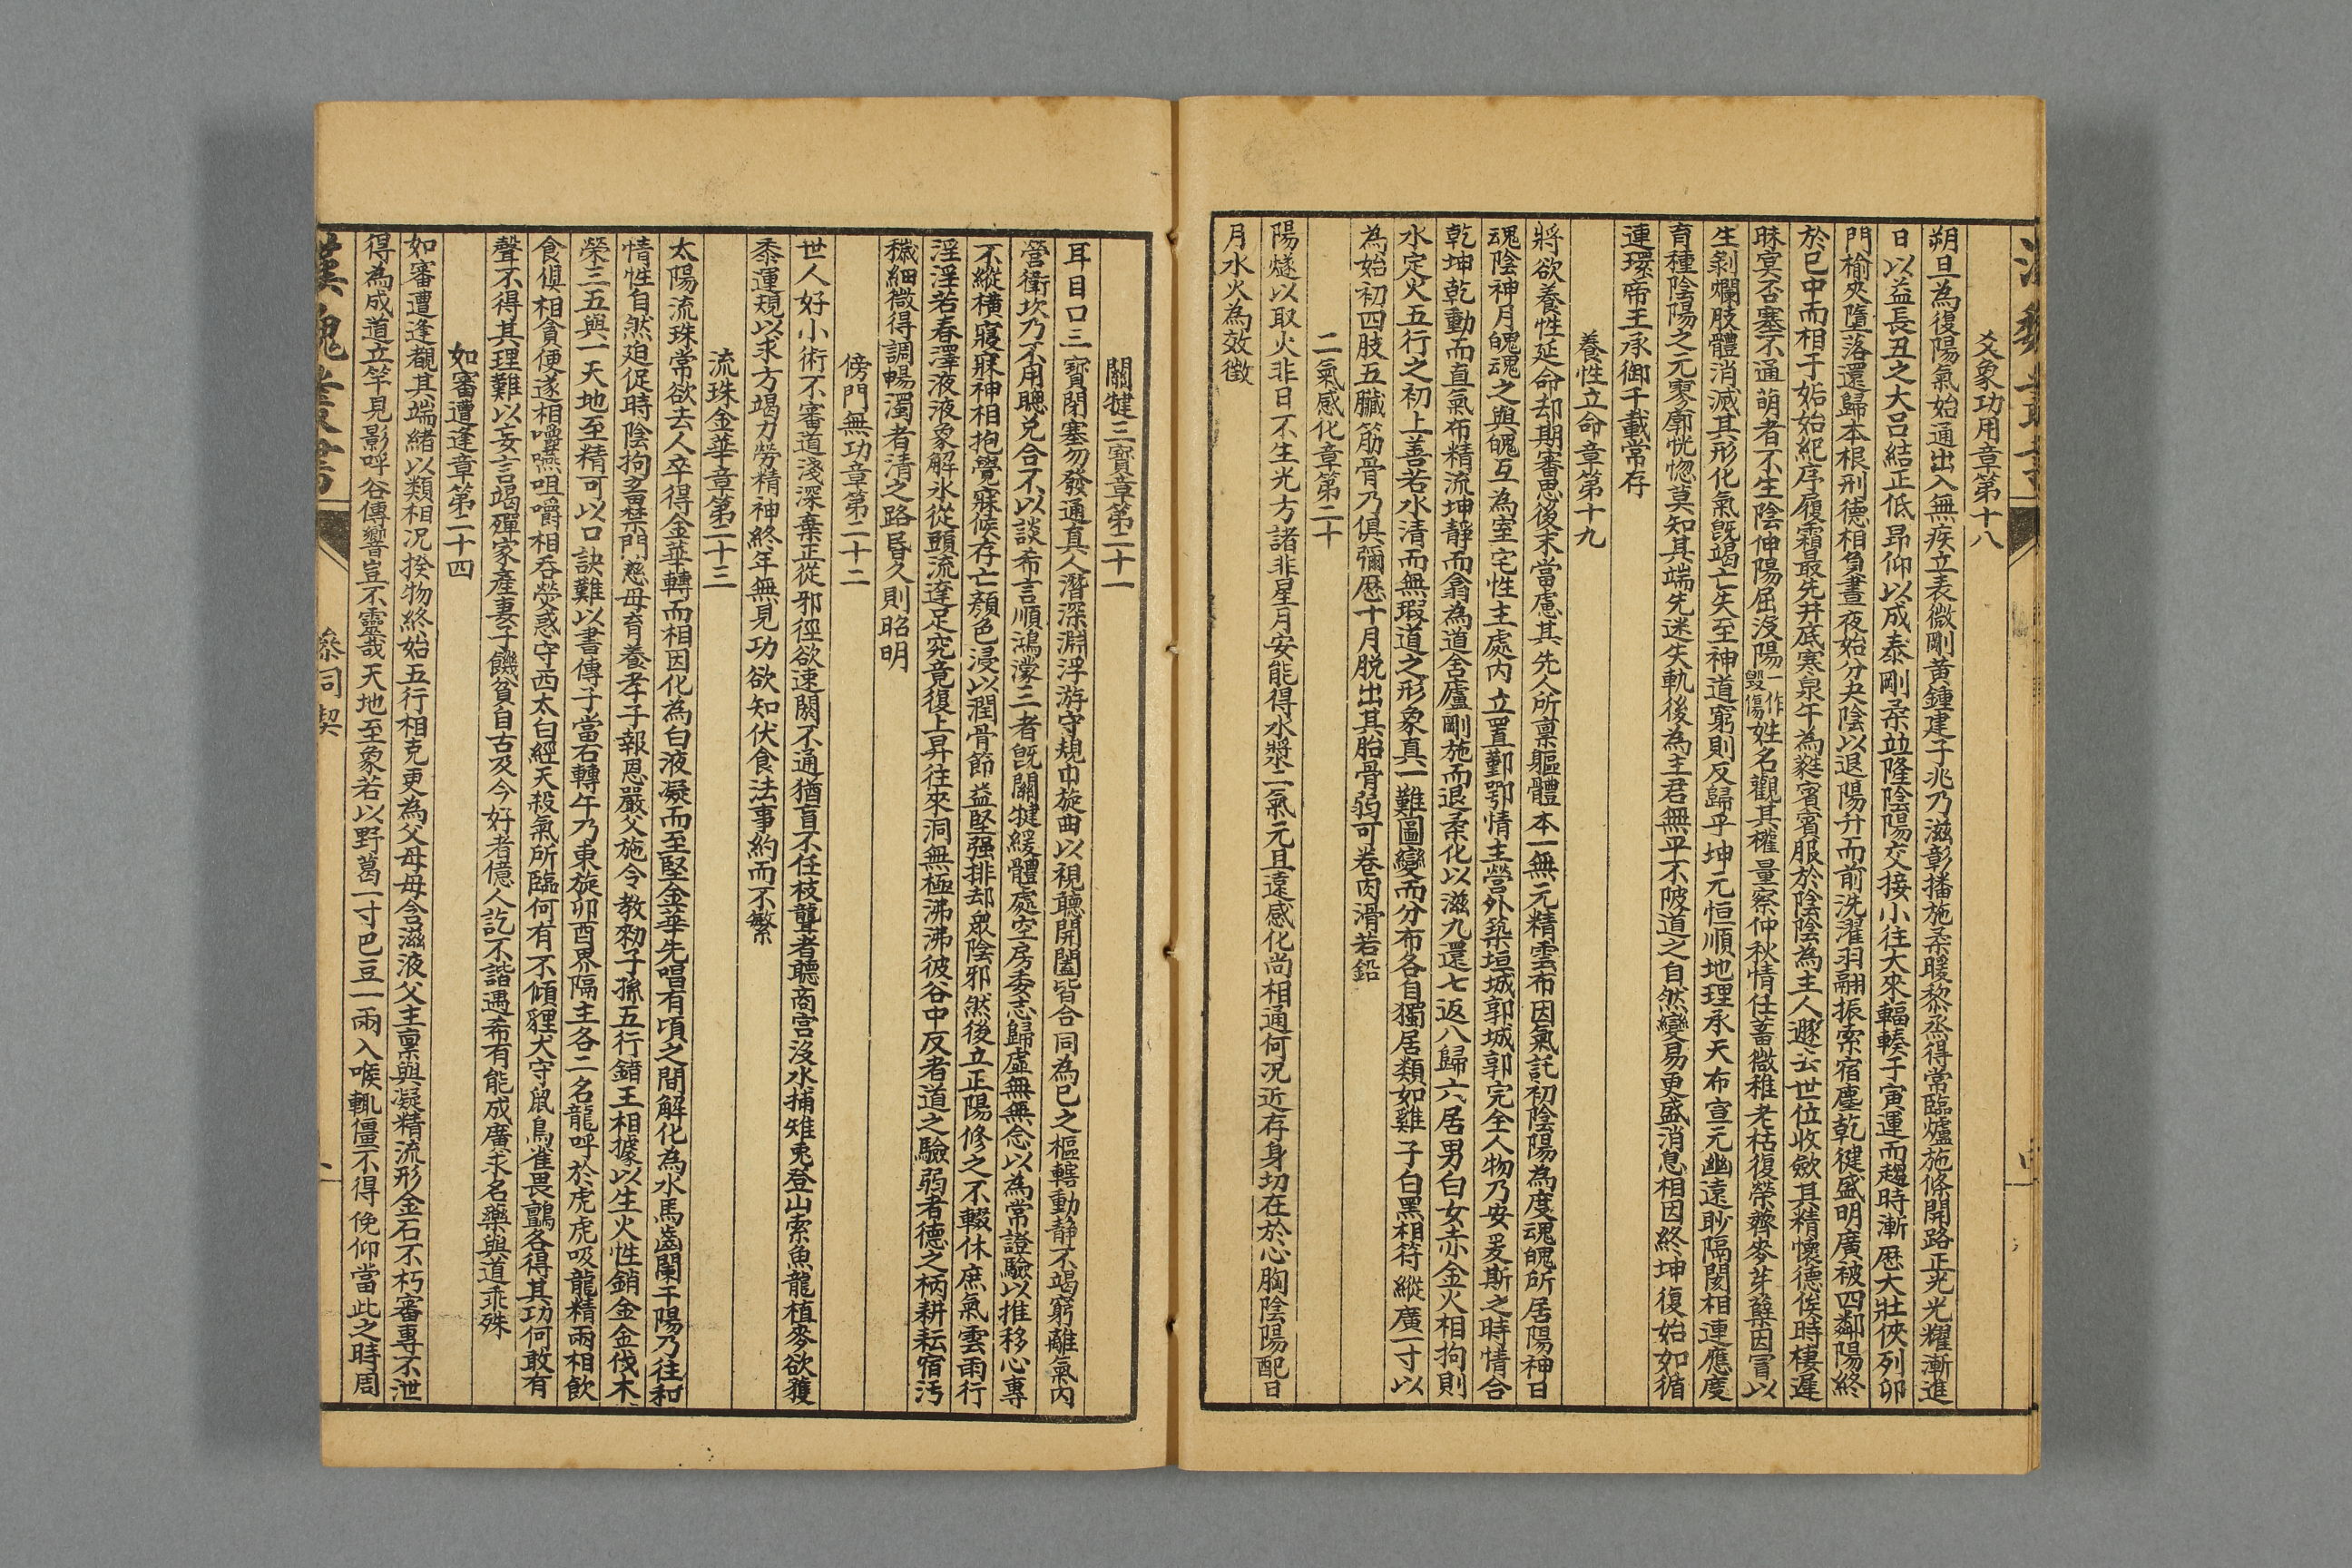 爻象功用章第十八
朔旦為復陽氣始通出入無疾立表微剛黃鍾建子兆乃滋彰播施柔暖黎烝得常臨爐施條開路正光光耀漸進
日以益長丑之大呂結正低昂仰以成泰剛柔並隆陰陽交接小往大來輻輳于寅運而趨時漸歷大壯俠列卯
門榆莢墮落還歸本根刑德相負晝夜始分夬陰以退陽升而前洗濯羽翮振索宿塵乾健盛明廣被四鄰陽終
於巳中而相于姤始紀序履霜最先井底寒泉午為蕤賓賓服於陰陰為主人遯去世位收斂其精懷德俟時棲遲
昧冥否塞不通萌者不生陰伸陽屈沒陽一作毀傷姓名觀其權量察仲秋情任畜微稚老枯復榮薺麥芽蘖因冒以
生剝爛肢體消滅其形化氣既竭亡失至神道窮則反歸乎坤元恒順地理承天布宣元幽遠眇隔閡相連應度
育種陰陽之元寥廓恍惚莫知其端先迷失軌後為主君無平不陂道之自然變易更盛消息相因終坤復始如循
連環帝王承御千載常存
養性立命章第十九
將欲養性延命却期審思後末當慮其先人所稟軀體本一無元精雲布因氣託初陰陽為度魂魄所居陽神日
魂陰神月魄魂之與魄互為室宅性主處內立置鄞鄂情主營外築垣城郭城郭完全人物乃安爰斯之時情合
乾坤乾動而直氣布精流坤靜而翕為道舍廬剛施而退柔化以滋九還七返八歸六居男白女赤金火相拘則
水定火五行之初上善若水清而無瑕道之形象真一難圖變而分布各自獨居類如雞子白黑相符縱廣一寸以
為始初四肢五臟筋骨乃俱彌歷十月脫出其胎骨弱可卷肉滑若鉛
二氣感化章第二十
陽燧以取火非日不生光方諸非星月安能得水漿二氣元且遠感化尚相通何况近存身切在於心胸陰陽配日
月水火為效徵
關鍵三寶章第二十一
耳目口三寶閉塞勿發通真人潛深淵浮游守規中旋曲以視聽開闔皆合同為已之樞轄動靜不竭窮離氣內
營衛坎乃不用聰兌合不以談希言順鴻濛三者既關鍵緩體處空房委志歸虛無無念以為常證驗以推移心專
不縱橫寢寐神相抱覺寤候存亡顏色浸以潤骨節益堅强排却衆陰邪然後立正陽修之不輟休庶氣雲雨行
淫淫若春澤液液象解氷從頭流達足究竟復上昇往來洞無極沸沸彼谷中反者道之驗弱者德之柄耕耘宿汚
穢細微得調暢濁者清之路昏久則昭明
傍門無功章第二十二
世人好小術不審道淺深棄正從邪徑欲速閼不通猶盲不任杖聾者聽商宮沒水捕雉兎登山索魚龍植麥欲穫
黍運規以求方竭力勞精神終年無見功欲知伏食法事約而不繁
流珠金華章第二十三
太陽流珠常欲去人卒得金華轉而相因化為白液凝而至堅金華先唱有頃之間解化為水馬齒闌干陽乃往和
情性自然迫促時陰拘畜禁門慈母育養孝子報恩嚴父施令教勑子孫五行錯王相據以生火性銷金金伐木
榮三五與一天地至精可以口訣難以書傳子當右轉午乃東旋卯酉界隔主各二名龍呼於虎虎吸龍精兩相飲
食俱相貪便遂相嚥嚥咀嚼相吞熒惑守西太白經天殺氣所臨何有不傾貍犬守鼠鳥雀畏鸇各得其功何敢有
聲不得其理難以妄言竭殫家產妻子饑貧自古及今好者億人訖不諧遇希有能成廣求名藥與道乖殊
如審遭逢章第二十四
如審遭逢覩其端緒以類相况揆物終始五行相克更為父母母含滋液父主稟與凝精流形金石不朽審專不泄
得為成道立竿見影呼谷傳響豈不靈哉天地至象若以野葛一寸巴豆一兩入喉輒僵不得俛仰當此之時周
漢魏叢書 參同契